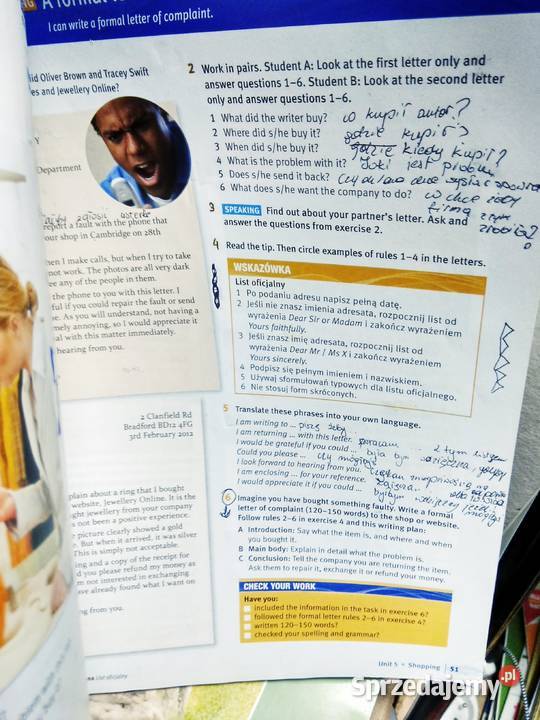 I can write a formal letter of complaint.
id Oliver Brown and Tracey Swift
es and Jewellery Online?
Y
Department
report a fault with the phone that
our shop in Cambridge on 28th
en I make calls, but when I try to take
not work. The photos are all very dark
ee any of the people in them.
the phone to you with this letter. I
ful if you could repair the fault or send
e. As you will understand, not having a
mely annoying, so I would appreciate it
al with this matter immediately.
hearing from you.
2 Clanfield Rd
Bradford BD12 4FG
3rd February 2012
plain about a ring that I bought
website, Jewellery Online. It is the
ght jewellery from your company
s not been a positive experience.
picture clearly showed a gold
. But when it arrived, it was silver
This is simply not acceptable.
ing and a copy of the receipt for
d you please refund my money as
m not interested in exchanging
ave already found what I want on
ng from you.
2 Work in pairs. Student A: Look at the first letter only and
answer questions 1–6. Student B: Look at the second letter
only and answer questions 1–6.
1 What did the writer buy? co kupił autor?
2 Where did s/he buy it? gdzie kupił?
3 When did s/he buy it? gdzie kiedy kupił?
4 What is the problem with it? Jaki jest problem
5 Does s/he send it back?
6 What does s/he want the company to do? co chce żeby
firma z tym
zrobiła?
3 SPEAKING Find out about your partner's letter. Ask and
answer the questions from exercise 2.
4 Read the tip. Then circle examples of rules 1–4 in the letters.
WSKAZÓWKA
List oficjalny
1 Po podaniu adresu napisz pełną datę.
2 Jeśli nie znasz imienia adresata, rozpocznij list od
wyrażenia Dear Sir or Madam i zakończ wyrażeniem
Yours faithfully.
3 Jeśli znasz imię adresata, rozpocznij list od
wyrażenia Dear Mr / Ms X i zakończ wyrażeniem
Yours sincerely.
4 Podpisz się pełnym imieniem i nazwiskiem.
5 Używaj sformułowań typowych dla listu oficjalnego.
6 Nie stosuj form skróconych.
5 Translate these phrases into your own language.
I am writing to ... piszę żeby ...
I am returning ... with this letter. zwracam ... z tym listem
I would be grateful if you could ... była bym wdzięczna, gdyby
Could you please ... czy mógłbyś
I look forward to hearing from you.
I am enclosing ... for your reference.
I would appreciate it if you could ...
6 Imagine you have bought something faulty. Write a formal
letter of complaint (120–150 words) to the shop or website.
Follow rules 2–6 in exercise 4 and this writing plan:
A Introduction: Say what the item is, and where and when
you bought it.
B Main body: Explain in detail what the problem is.
C Conclusion: Tell the company you are returning the item.
Ask them to repair it, exchange it or refund your money.
CHECK YOUR WORK
Have you:
included the information in the task in exercise 6?
followed the formal letter rules 2–6 in exercise 4?
written 120–150 words?
checked your spelling and grammar?
Unit 5 • Shopping 51
List oficjalny
Sprzedajemy.pl